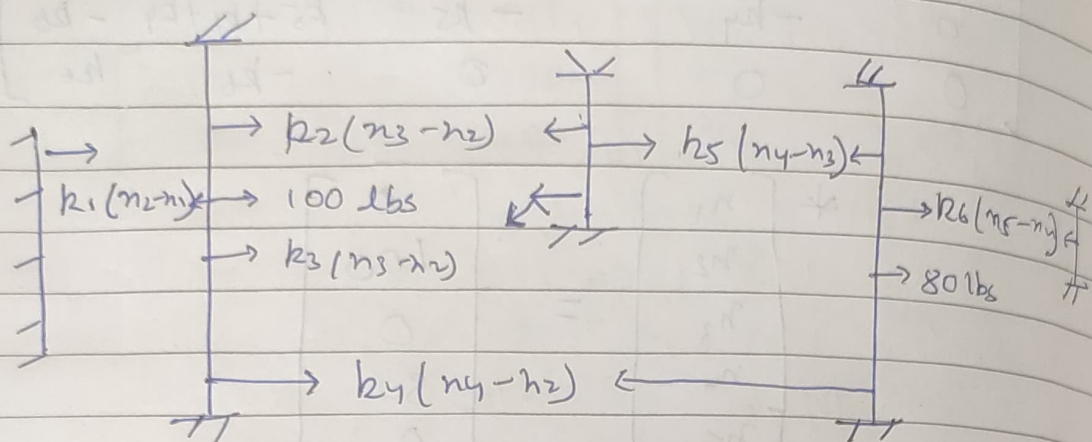 k2(x3-x2)
k5(x4-x3)
k1(x2-x1)
100 lbs
k6(x5-x4)
k3(x3-x2)
80 lbs
k4(x4-x2)